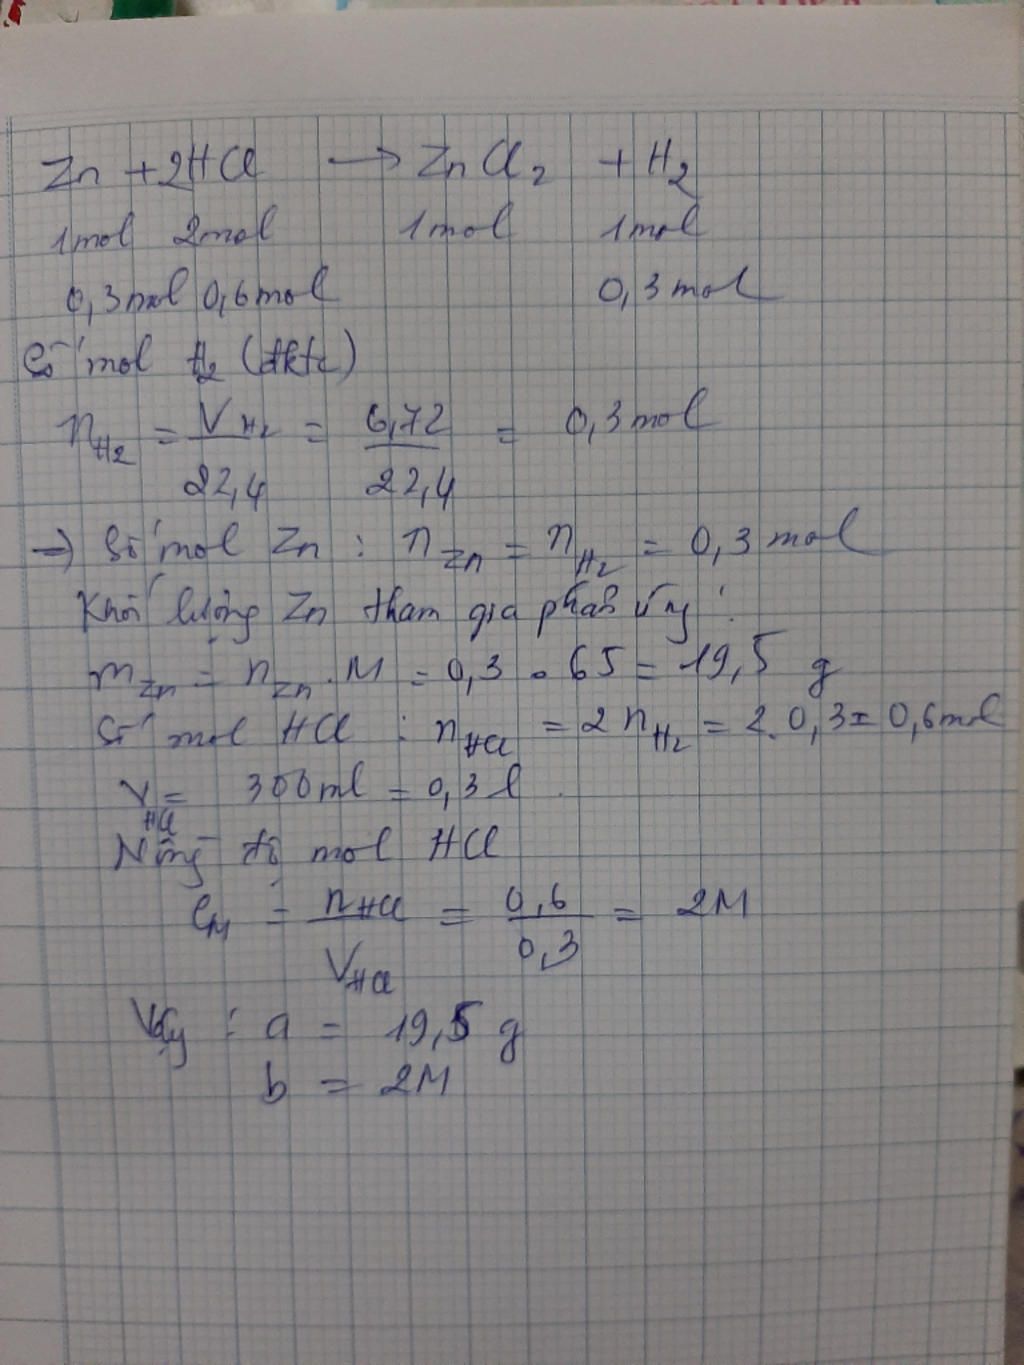 Zn + 2HCl → ZnCl₂ + H₂
1mol 2mol 1mol 1mol
0,3mol 0,6mol 0,3mol
Số mol H₂ (đktc)
n_H₂ = V_H₂ / 22,4 = 6,72 / 22,4 = 0,3mol
→ Số mol Zn : n_Zn = n_H₂ = 0,3 mol
Khối lượng Zn tham gia phản ứng :
m_Zn = n_Zn . M = 0,3 . 65 = 19,5 g
Số mol HCl : n_HCl = 2 n_H₂ = 2. 0,3 = 0,6mol
V_HCl = 300ml = 0,3l .
Nồng độ mol HCl
C_M = n_HCl / V_HCl = 0,6 / 0,3 = 2M
Vậy : a = 19,5 g
b = 2M